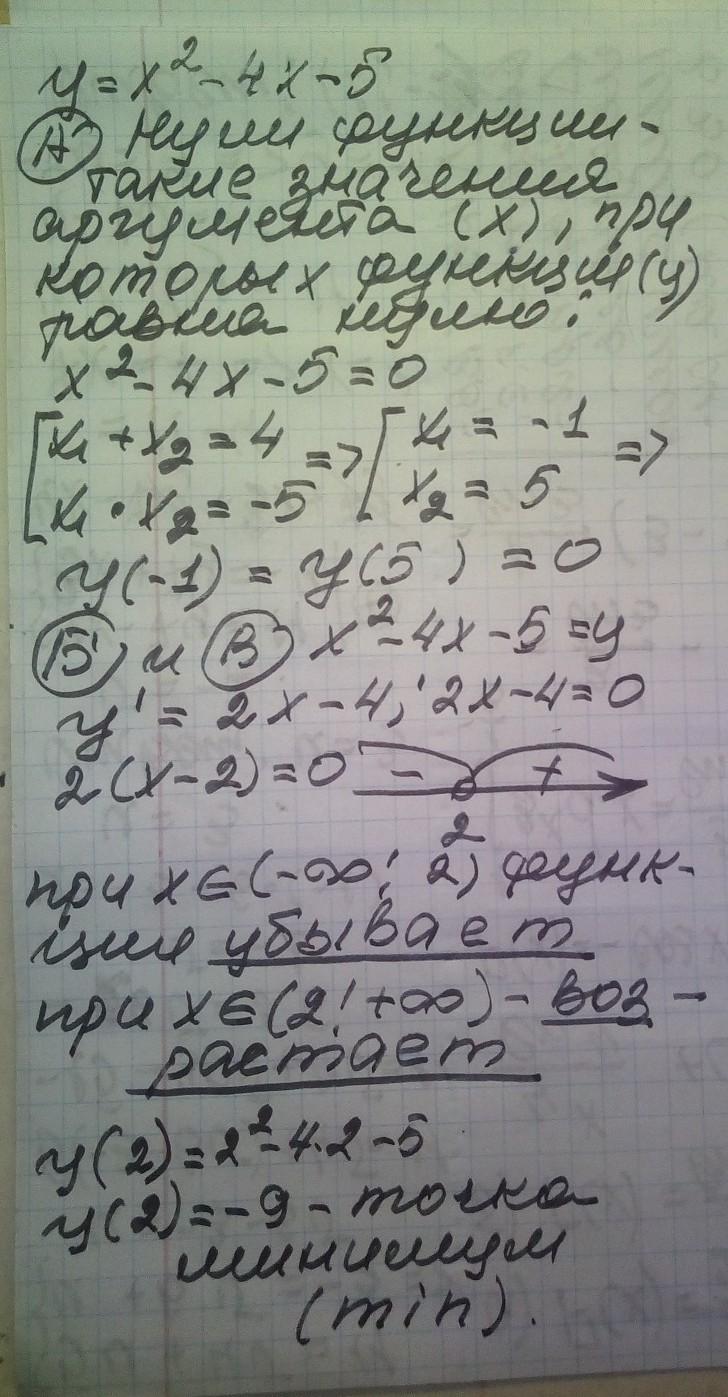 y = x² - 4x - 5
А) Нули функции -
такие значения
аргумента (x), при
которых функция (y)
равна нулю:
x² - 4x - 5 = 0
[x₁ + x₂ = 4 => [x₁ = -1 =>
[x₁ · x₂ = -5 [x₂ = 5
y(-1) = y(5) = 0
Б) и В) x² - 4x - 5 = y
y' = 2x - 4; 2x - 4 = 0
2(x - 2) = 0 - +
2
при x ∈ (-∞; 2) функ-
ция убывает
при x ∈ (2; +∞) - воз-
растает
y(2) = 2² - 4·2 - 5
y(2) = -9 - точка
минимум
(min).